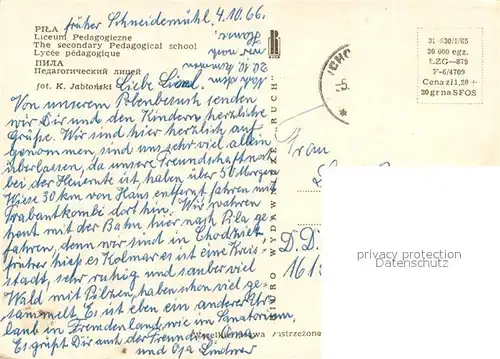 früher Schneidemühl, 4.10.66.
PIŁA
Liceum Pedagogiczne
The secondary Pedagogical school
Lycée pédagogique
ПИЛА
Педагогический лицей
fot. K. Jabłoński
Liebe
Von unserem Polenbesuch senden
wir Dir und den Kindern herzliche
Grüße. Wir sind hier herzlich auf
genommen, sind uns sehr viel allein
überlassen, da unsere Freundschaft noch
bei der Heuernte ist, haben über 50 Morgen
Wiese 30 km von Haus entfernt fahren mit
Trabantkombi dort hin. Wir
mit der Bahn hier nach Piła ge
fahren, denn wir sind in Chodzież
früher hieß es Kolmar es ist eine Kreis-
stadt, sehr ruhig und sauber viel
Wald mit Pilzen, haben schon viel ge-
sammelt. Es ist eben ein anderer Ur
laub in Fremdenland, wie im Sanatorium.
Es grüßt Dir auch der Freund, Oma
und Opa
BIURO WYDAW "RUCH"
zastrzeżone
CHO
5
31-630/I/65
20 000 egz.
ŁZG-879
F-6/4709
Cena zł 1,20 +
20 gr na SFOS
Frau
D.D.
161
privacy protection
www.ansichtskartenversand.com